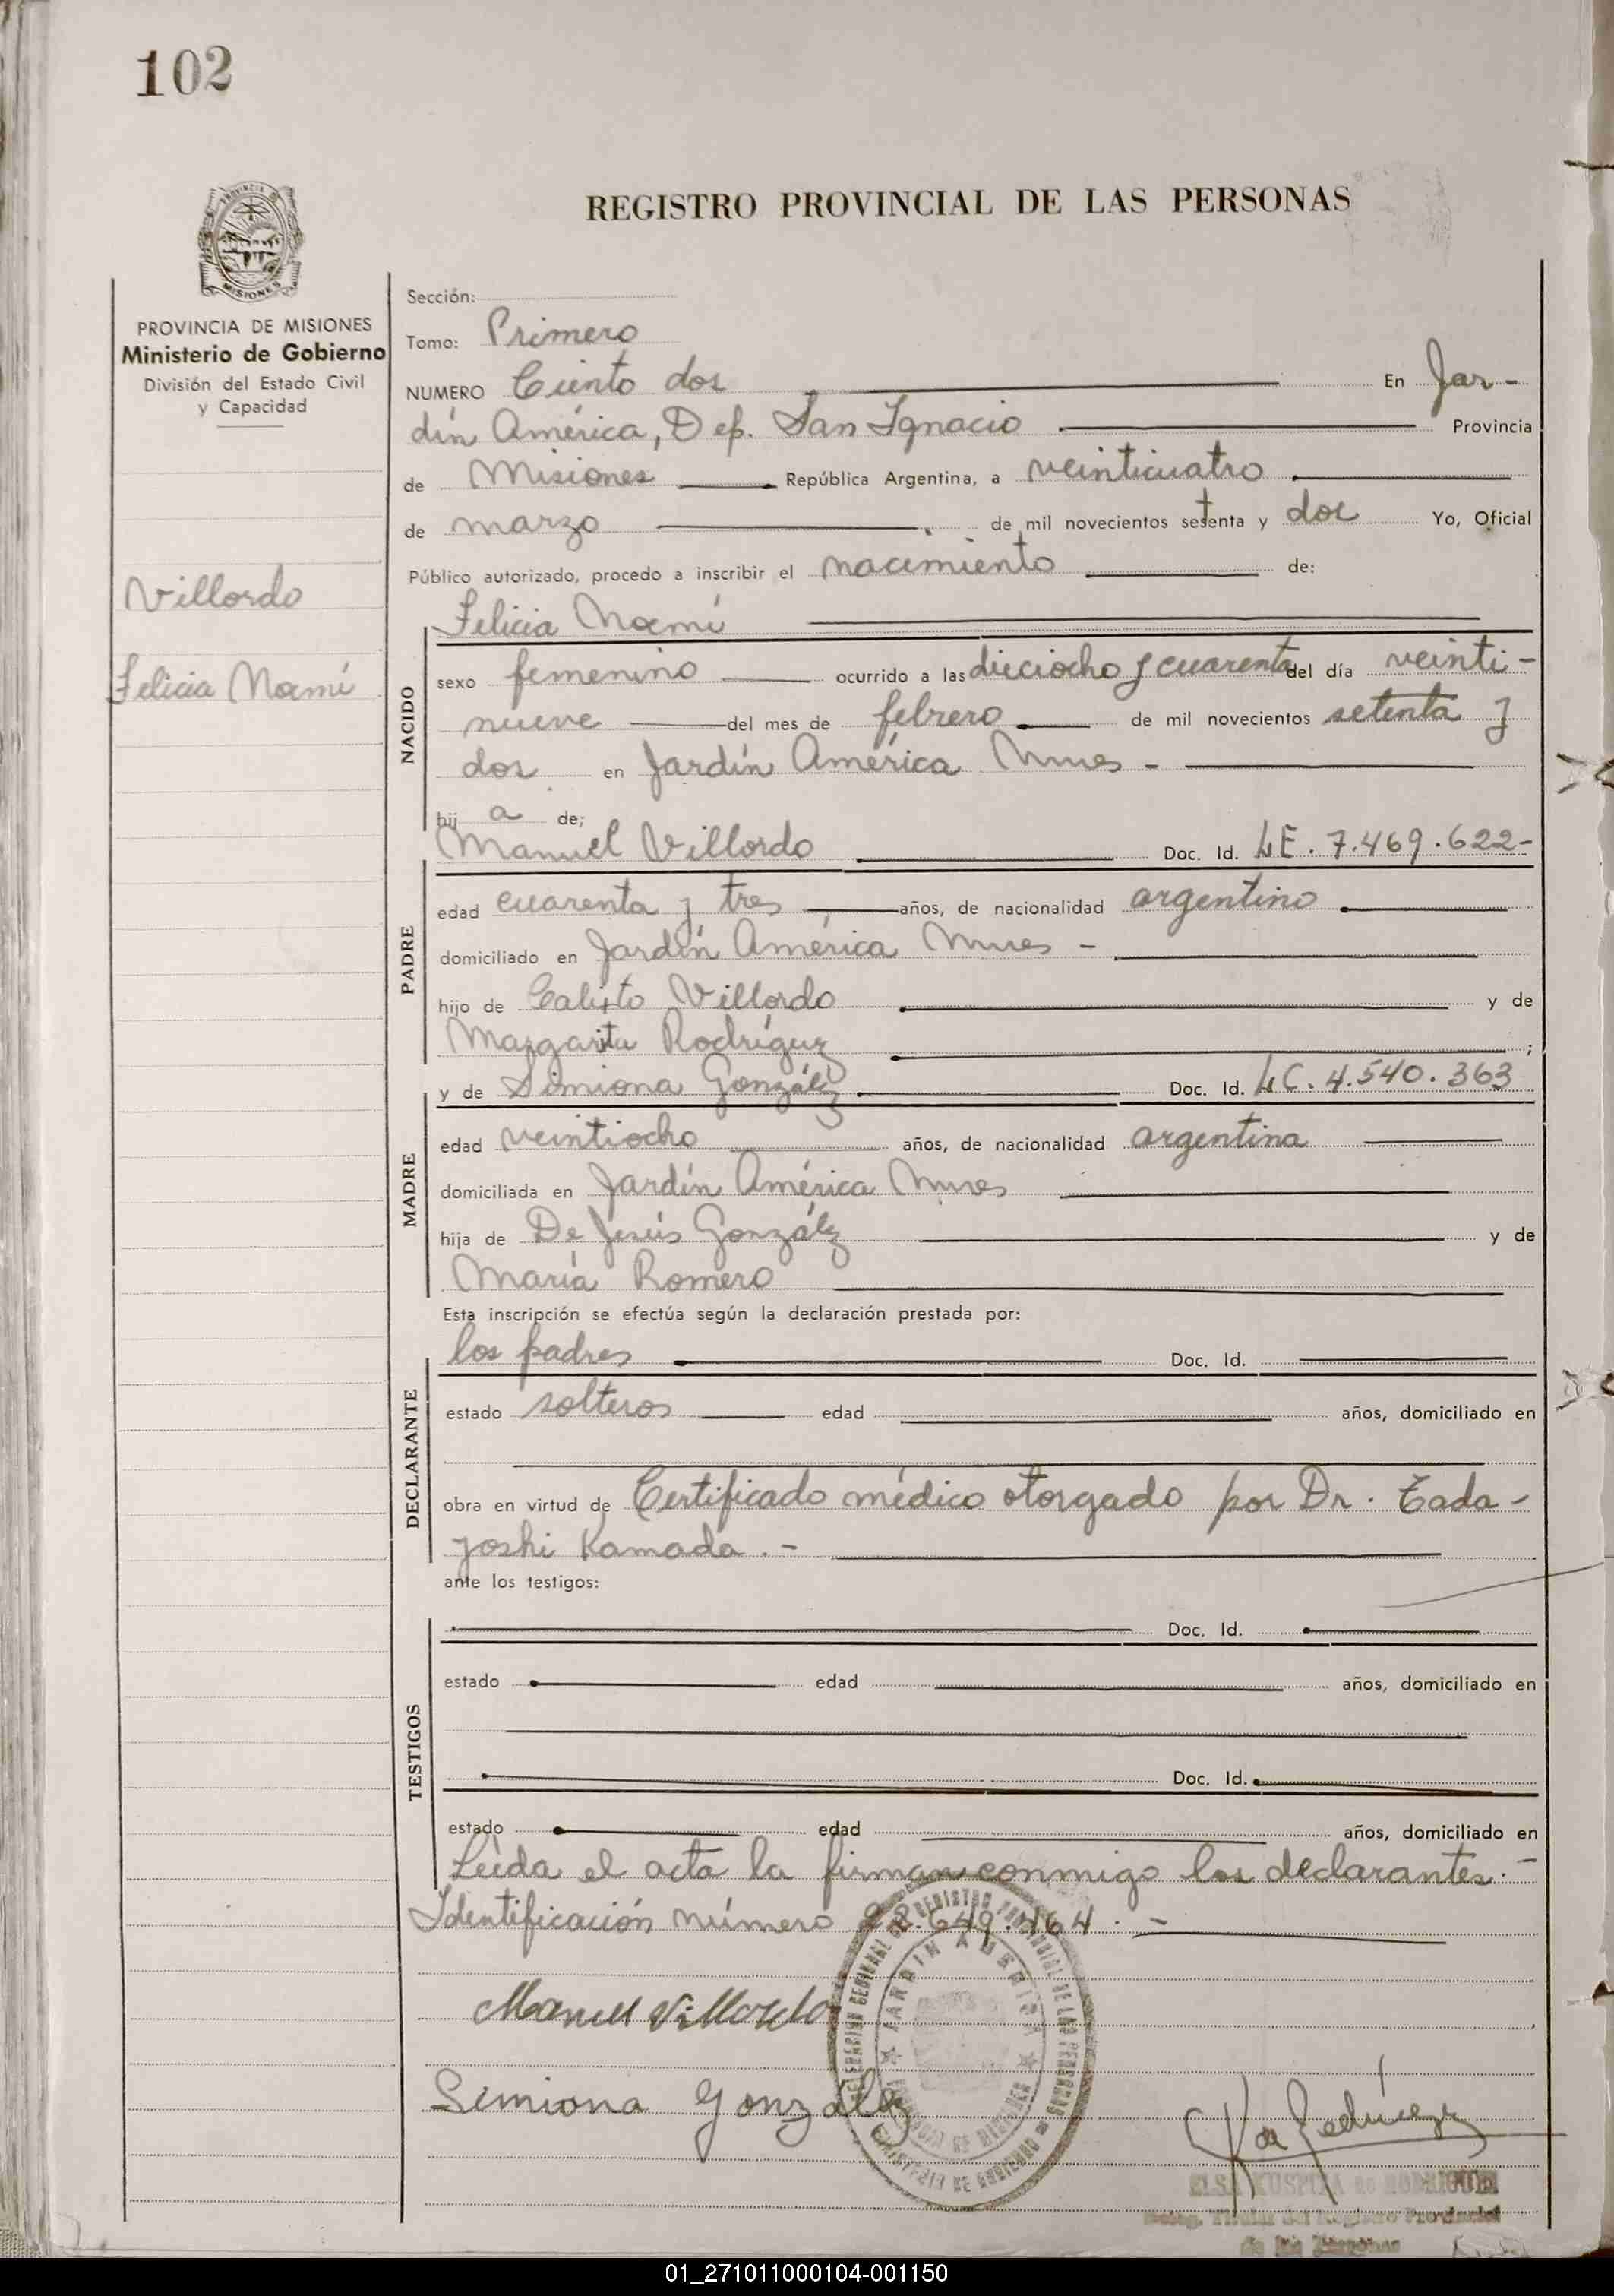 102
REGISTRO PROVINCIAL DE LAS PERSONAS
PROVINCIA DE MISIONES
Ministerio de Gobierno
División del Estado Civil
y Capacidad
Villordo
Felicia Noemí
Sección:
Tomo: Primero
NUMERO Ciento dos En Jar-
dín América, Dep. San Ignacio Provincia
de Misiones República Argentina, a veinticuatro
de marzo de mil novecientos setenta y dos Yo, Oficial
Público autorizado, procedo a inscribir el nacimiento de:
Felicia Noemí
NACIDO
sexo femenino ocurrido a las dieciocho y cuarenta del día veinti-
nueve del mes de febrero de mil novecientos setenta y
dos en Jardín América Mnes -
hij a de;
Manuel Villordo Doc. Id. LE. 7.469.622-
PADRE
edad cuarenta y tres años, de nacionalidad argentino
domiciliado en Jardín América Mnes -
hijo de Calixto Villordo y de
Margarita Rodríguez ;
y de Simiona González Doc. Id. LC. 4.540.363
MADRE
edad veintiocho años, de nacionalidad argentina
domiciliada en Jardín América Mnes
hija de De Jesús González y de
María Romero
Esta inscripción se efectúa según la declaración prestada por:
los padres Doc. Id.
DECLARANTE
estado solteros edad años, domiciliado en
obra en virtud de Certificado médico otorgado por Dr. Tada-
yoshi Kamada. -
ante los testigos:
TESTIGOS
Doc. Id.
estado edad años, domiciliado en
Doc. Id.
estado edad años, domiciliado en
Leída el acta la firman conmigo los declarantes. -
Identificación número 22.649.464. -
Manuel Villordo
Simiona González
JARDIN AMERICA
ELSA KUSPITA de RODRIGUEZ
Titular del Registro Provincial
de las Personas
01_271011000104-001150